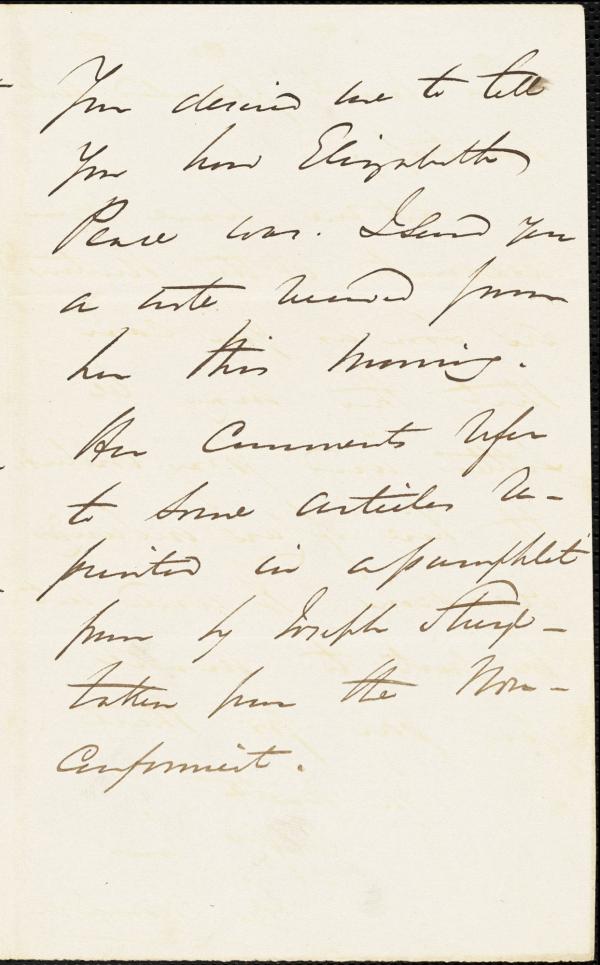 You desired me to tell
you how Elizabeth
Pease was. I send you
a note received from
her this morning.
Her comments refer
to some articles re-
printed in a pamphlet
from by Joseph Sturge -
taken from the Non-
conformist.